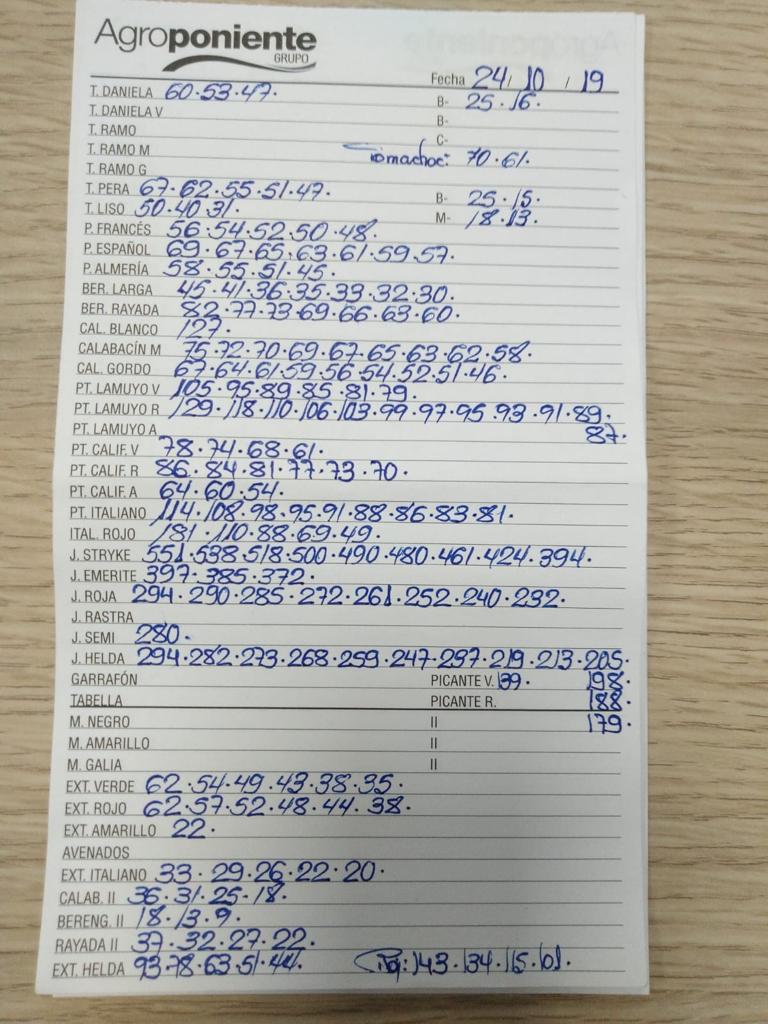 Agroponiente
GRUPO
Fecha 24/10/19
T. DANIELA 60.53.47. B- 25.16.
T. DANIELA V B-
T. RAMO C-
T. RAMO M 70.61.
T. RAMO G
T. PERA 67.62.55.51.47. B- 25.15.
T. LISO 50.40.31. M- 18.13.
P. FRANCÉS 56.54.52.50.48.
P. ESPAÑOL 69.67.65.63.61.59.57.
P. ALMERÍA 58.55.51.45.
BER. LARGA 45.41.36.35.33.32.30.
BER. RAYADA 82.77.73.69.66.63.60.
CAL. BLANCO 127.
CALABACÍN M 75.72.70.69.67.65.63.62.58.
CAL. GORDO 67.64.61.59.56.54.52.51.46.
PT. LAMUYO V 105.95.89.85.81.79.
PT. LAMUYO R 129.118.110.106.103.99.97.95.93.91.89.
PT. LAMUYO A 87.
PT. CALIF. V 78.74.68.61.
PT. CALIF. R 86.84.81.77.73.70.
PT. CALIF. A 64.60.54.
PT. ITALIANO 114.108.98.95.91.88.86.83.81.
ITAL. ROJO 181.110.88.69.49.
J. STRYKE 551.538.518.500.490.480.461.424.394.
J. EMERITE 397.385.372.
J. ROJA 294.290.285.272.261.252.240.232.
J. RASTRA
J. SEMI 280.
J. HELDA 294.282.273.268.259.247.237.219.213.205.
GARRAFÓN PICANTE V. 139. 198.
TABELLA PICANTE R. 188.
M. NEGRO II 179.
M. AMARILLO II
M. GALIA II
EXT. VERDE 62.54.49.43.38.35.
EXT. ROJO 62.57.52.48.44.38.
EXT. AMARILLO 22.
AVENADOS
EXT. ITALIANO 33.29.26.22.20.
CALAB. II 36.31.25.18.
BERENG. II 18.13.9.
RAYADA II 37.32.27.22.
EXT. HELDA 93.78.63.51.44. 143.134.115.101.